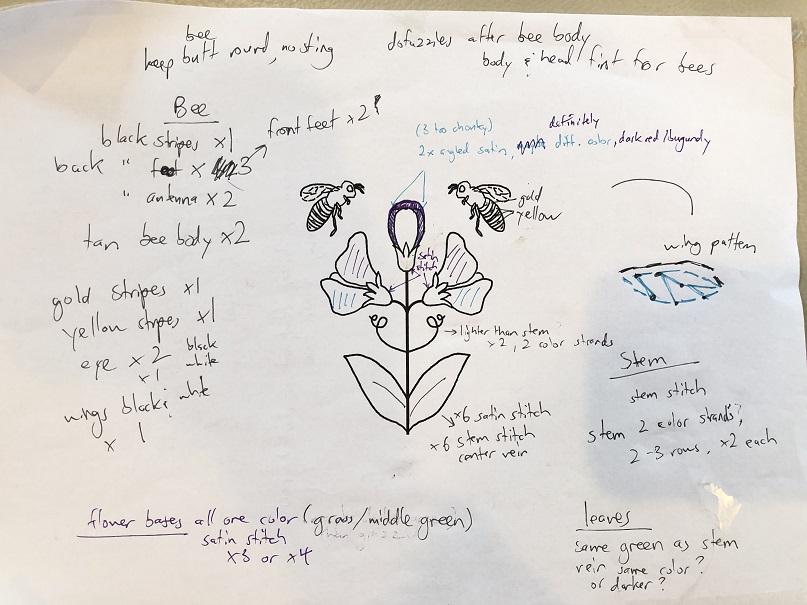 bee
keep butt round, no sting
do fuzzies after bee body
body & head first for bees
Bee
black stripes x1
back " feet x 3
front feet x2
" antenna x2
tan bee body x2
gold stripes x1
yellow stripes x1
eye x2 black
x1 white
wings black & white
x 1
(3 too chonky)
2x angled satin, definitely diff. color, dark red/burgundy
gold
yellow
satin stitch
wing pattern
lighter than stem
x2, 2 color strands
x6 satin stitch
x6 stem stitch
center vein
Stem
stem stitch
stem 2 color strands,
2-3 rows, x2 each
flower bases all one color (grass/middle green)
satin stitch
x3 or x4
leaves
same green as stem
vein same color?
or darker?